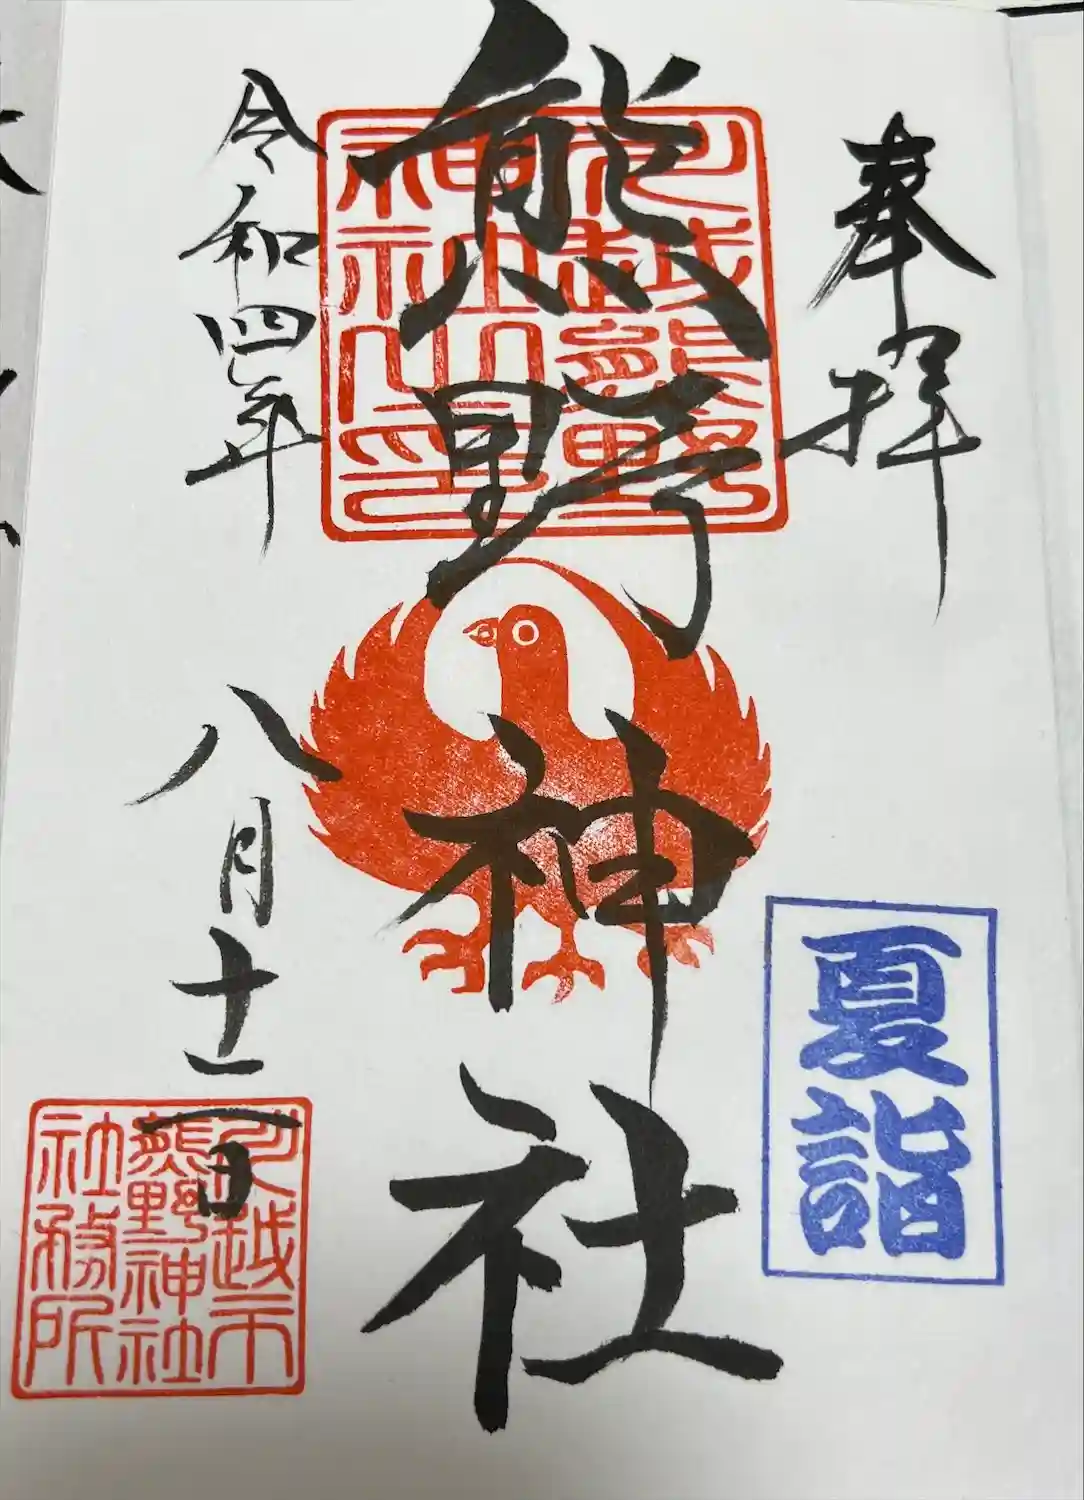 奉拝
夏詣
熊野神社
川越熊野
神社之印
令和四年八月十二日
川越市
熊野神社
社務所